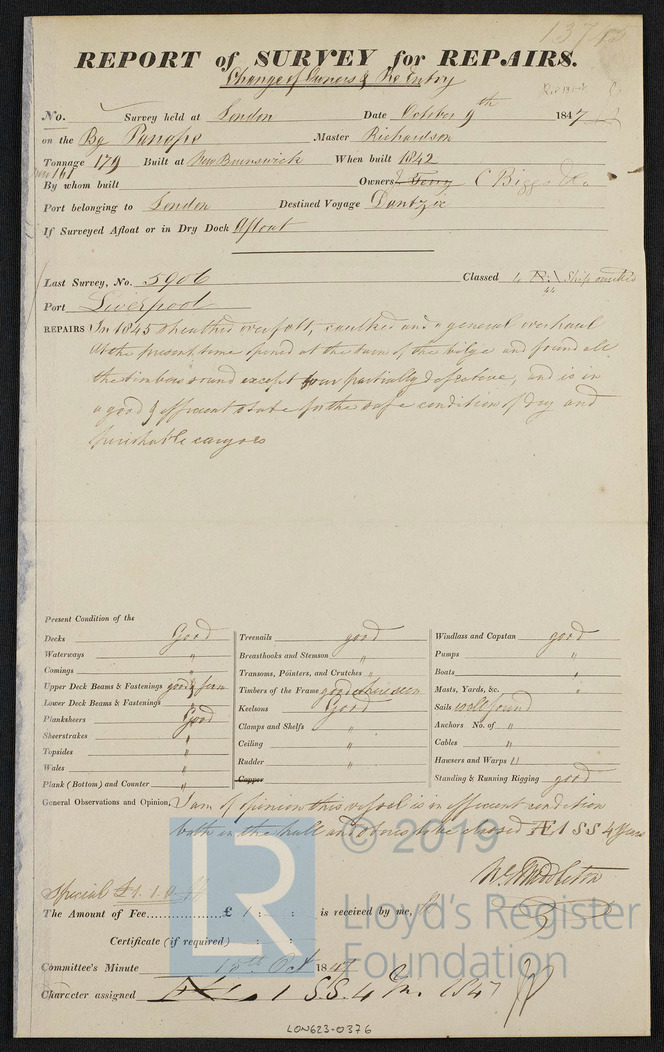 REPORT of SURVEY for REPAIRS.
Change of Owners & Re Entry
No. Survey held at London Date October 9th 1847
on the Bg Panope Master Richardson
Tonnage 179 Built at New Brunswick When built 1842
161
By whom built Owners C Biggs & Co.
Port belonging to London Destined Voyage Dantzic
If Surveyed Afloat or in Dry Dock Afloat
Last Survey, No. 5906 Classed
Port Liverpool
REPAIRS In 1845 sheathed over felt, caulked and a general overhaul
At the present time opened at the turn of the bilge and found all
the timbers sound except four partially defective, and is in
a good & efficient state for the safe condition of dry and
perishable cargoes
Present Condition of the
Decks Good
Waterways "
Comings "
Upper Deck Beams & Fastenings good
Lower Deck Beams & Fastenings "
Planksheers Good
Sheerstrakes "
Topsides "
Wales "
Plank (Bottom) and Counter "
Treenails good
Breasthooks and Stemson "
Transoms, Pointers, and Crutches "
Timbers of the Frame good
Keelsons Good
Clamps and Shelfs "
Ceiling "
Rudder "
Copper
Windlass and Capstan good
Pumps "
Boats "
Masts, Yards, &c. "
Sails well found
Anchors No. of "
Cables "
Hawsers and Warps "
Standing & Running Rigging good
General Observations and Opinion, I am of opinion this vessel is in efficient condition
both in the hull and stores to be classed Æ 1 SS 4 Years
Wm Middleton
Special £1.1.0
The Amount of Fee £ 1 : : is received by me,
Certificate (if required) : :
Committee's Minute 15th Oct 1847
Character assigned Æ 1 SS. 4 Yrs. 1847
LON623-0376
© 2019
Lloyd's Register
Foundation